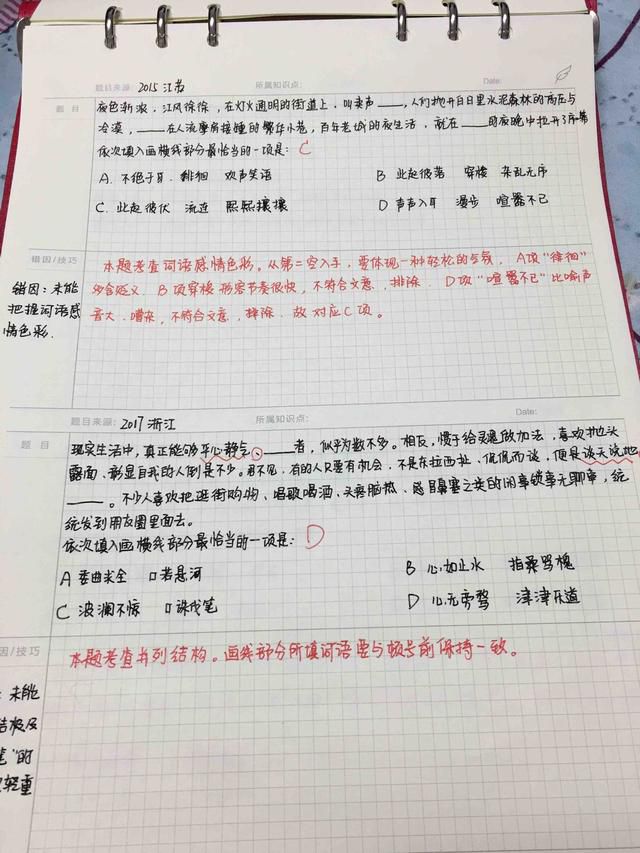 题目来源: 2015 江苏 所属知识点: Date:
题目
夜色渐浓，江风徐徐，在灯火通明的街道上，叫卖声____，人们抛开白日里水泥森林的高压与
冷漠，____在人流摩肩接踵的繁华小巷，百年老城的夜生活，就在____的夜晚中拉开了序幕
依次填入画横线部分最恰当的一项是: C
A. 不绝于耳 徘徊 欢声笑语 B 此起彼落 穿梭 杂乱无序
C. 此起彼伏 流连 熙熙攘攘 D 声声入耳 漫步 喧嚣不已
错因/技巧
错因：未能
把握词语感
情色彩.
本题考查词语感情色彩。从第二空入手，要体现一种轻松的气氛，A项"徘徊"
贬义. B项穿梭形容节奏很快，不符合文意，排除. D项"喧嚣不已"比喻声
音大.嘈杂，不符合文意，排除.故对应C项。
题目来源: 2017 浙江 所属知识点: Date:
题目
现实生活中，真正能够平心静气、____者，似乎为数不多。相反，惯于给灵魂做加法，喜欢抛头
露面、彰显自我的人倒是不少。君不见，有的人只要有机会，不是东拉西扯、侃侃而谈，便是谈天说地、
____。不少人喜欢把逛街购物、唱歌喝酒、头疼脑热、感冒鼻塞之类的闲事锁事无聊事，统
统发到朋友圈里面去。
依次填入画横线部分最恰当的一项是: D
A 委曲求全 口若悬河 B 心如止水 指桑骂槐
C 波澜不惊 口诛伐笔 D 心无旁骛 津津乐道
因/技巧
本题考查并列结构。画线部分所填词语要与顿号前保持一致。
: 未能
结构及
笔"的
轻重